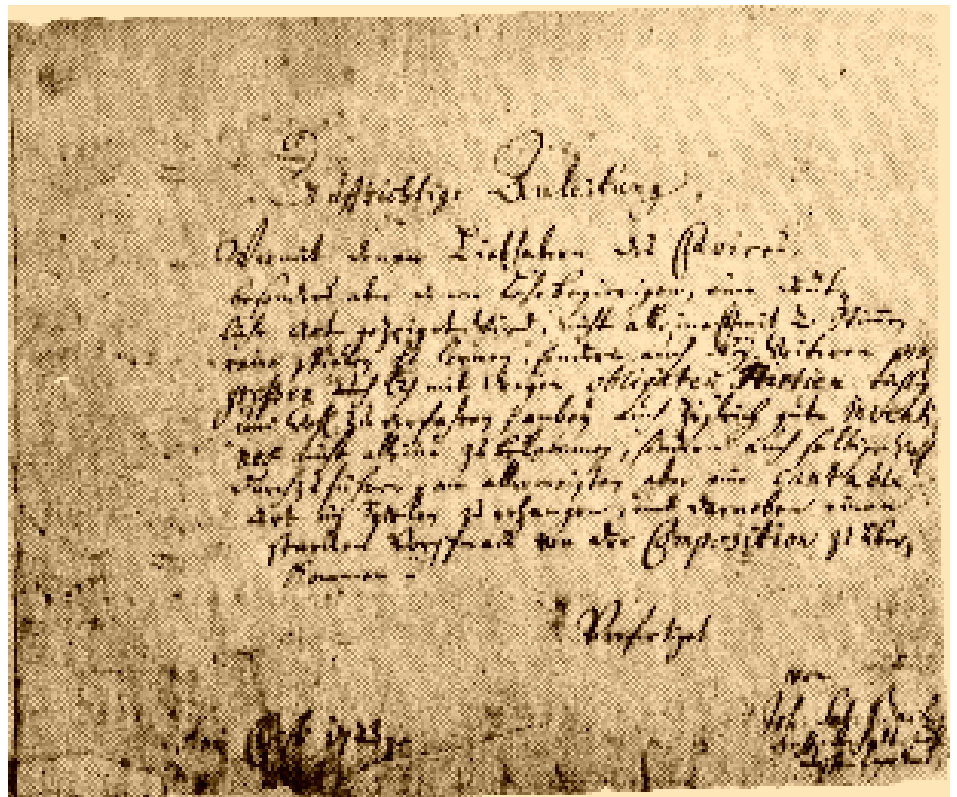 Auffrichtige Anleitung,
Wormit denen Liebhabern des Clavires,
besonders aber denen Lehrbegierigen, eine deüt-
liche Art gezeiget wird, nicht alleine mit 2 Stimen
reine spielen zu lernen, sondern auch bey weiteren pro-
greßen mit dreyen obligaten Partien
und wohl zu verfahren, anbey auch zugleich gute inventi-
ones nicht alleine zu bekommen, sondern auch selbige wohl
durchzuführen, am allermeisten aber eine cantable
Art im Spielen zu erlangen, und darneben einen
starcken Vorschmack von der Composition zu über-
kommen.
Verfertiget
von
Joh. Seb. Bach
1723